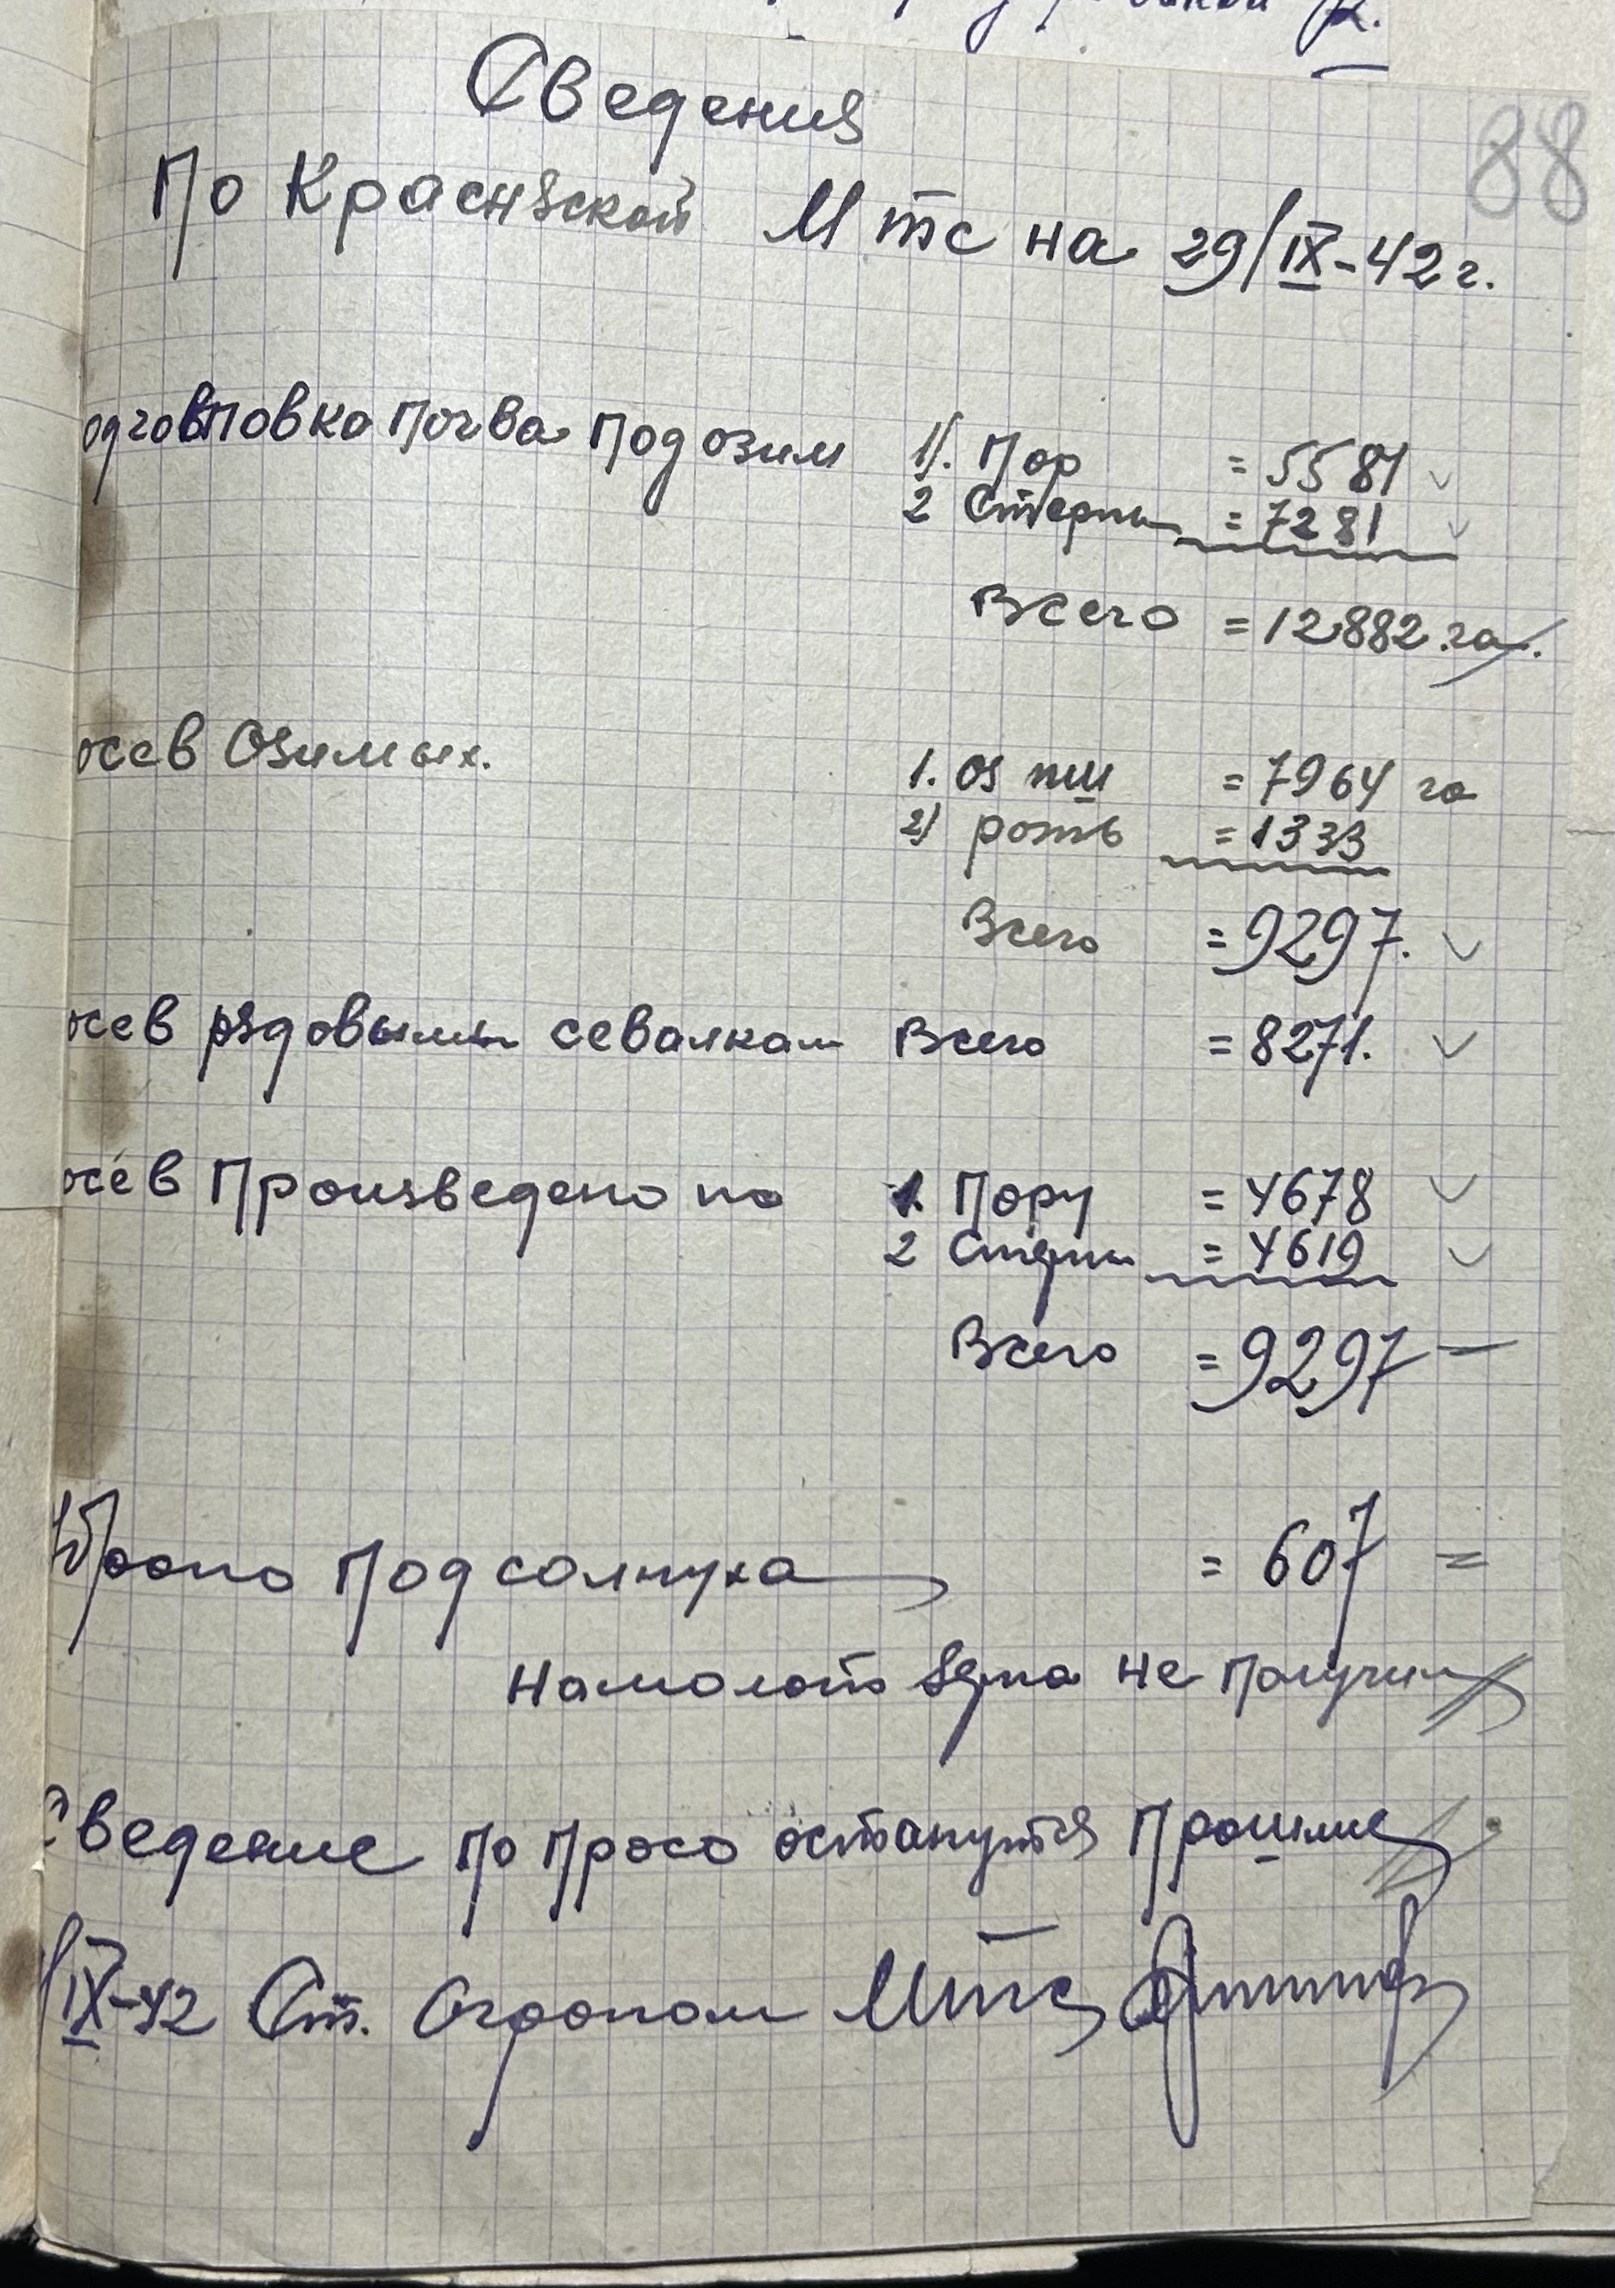 88
Сведения
По Краснянской МТС на 29/IX-42 г.
одговтовка почва под озим 1). Пар = 5581
2 Стерни = 7281
Всего = 12882 га.
осев Озимых. 1. оз пш = 7964 га
2) рожь = 1333
Всего = 9297.
осев рядовыми севалкам Всего = 8271.
осев Произведено по 1. Пару = 4678
2 Стерни = 4619
Всего = 9297
Убрано Подсолнуха = 607
Намолот зерна не получили
Сведение по просо останутся прошлые
/IX-42 Ст. Агроном МТС